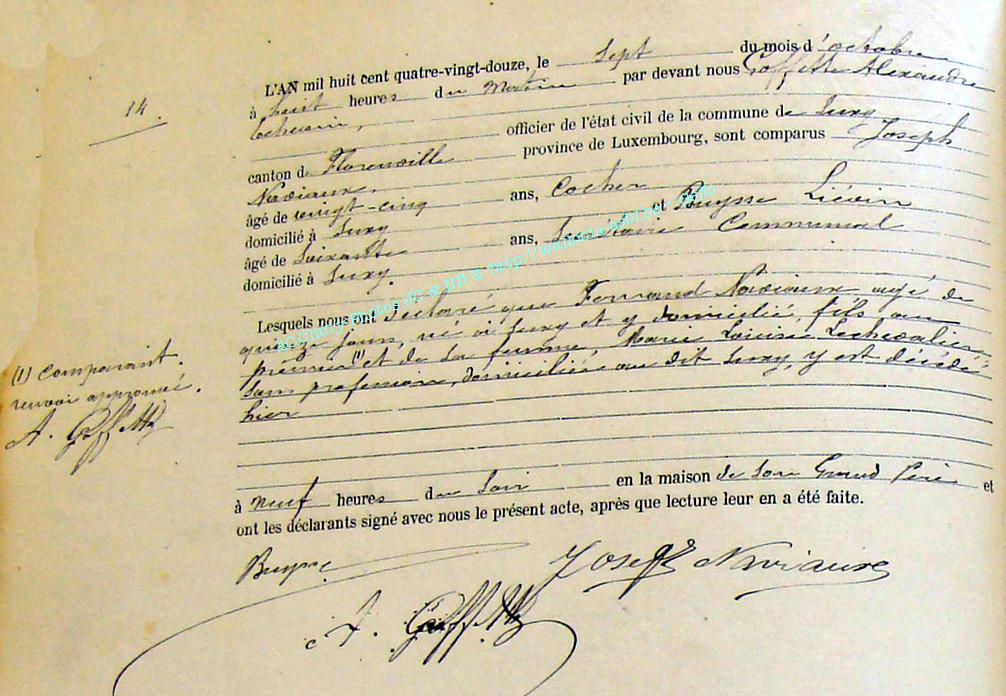 L'AN mil huit cent quatre-vingt-douze, le sept du mois d'octobre
à huit heures du matin par devant nous Goffette Alexandre
Echevin,
officier de l'état civil de la commune de Suxy
canton de Florenville province de Luxembourg, sont comparus Joseph
Naviaux,
âgé de vingt-cinq ans, Cocher
domicilié à Suxy et Buysse Liévin
âgé de Soixante ans, Secrétaire Communal
domicilié à Suxy.
Lesquels nous ont déclaré que Fernand Naviaux agé de
quinze jours, né à Suxy et y domicilié, fils du
premier (1) et de sa femme Marie Louise Lechevalier,
sans profession, domiciliée au dit Suxy, y est décédé
hier
à neuf heures du Soir en la maison de son Grand Père et
ont les déclarants signé avec nous le présent acte, après que lecture leur en a été faite.
Buysse
Joseph Naviaux
A. Goffette
14
(1) Comparant.
renvoi approuvé.
A. Goffette